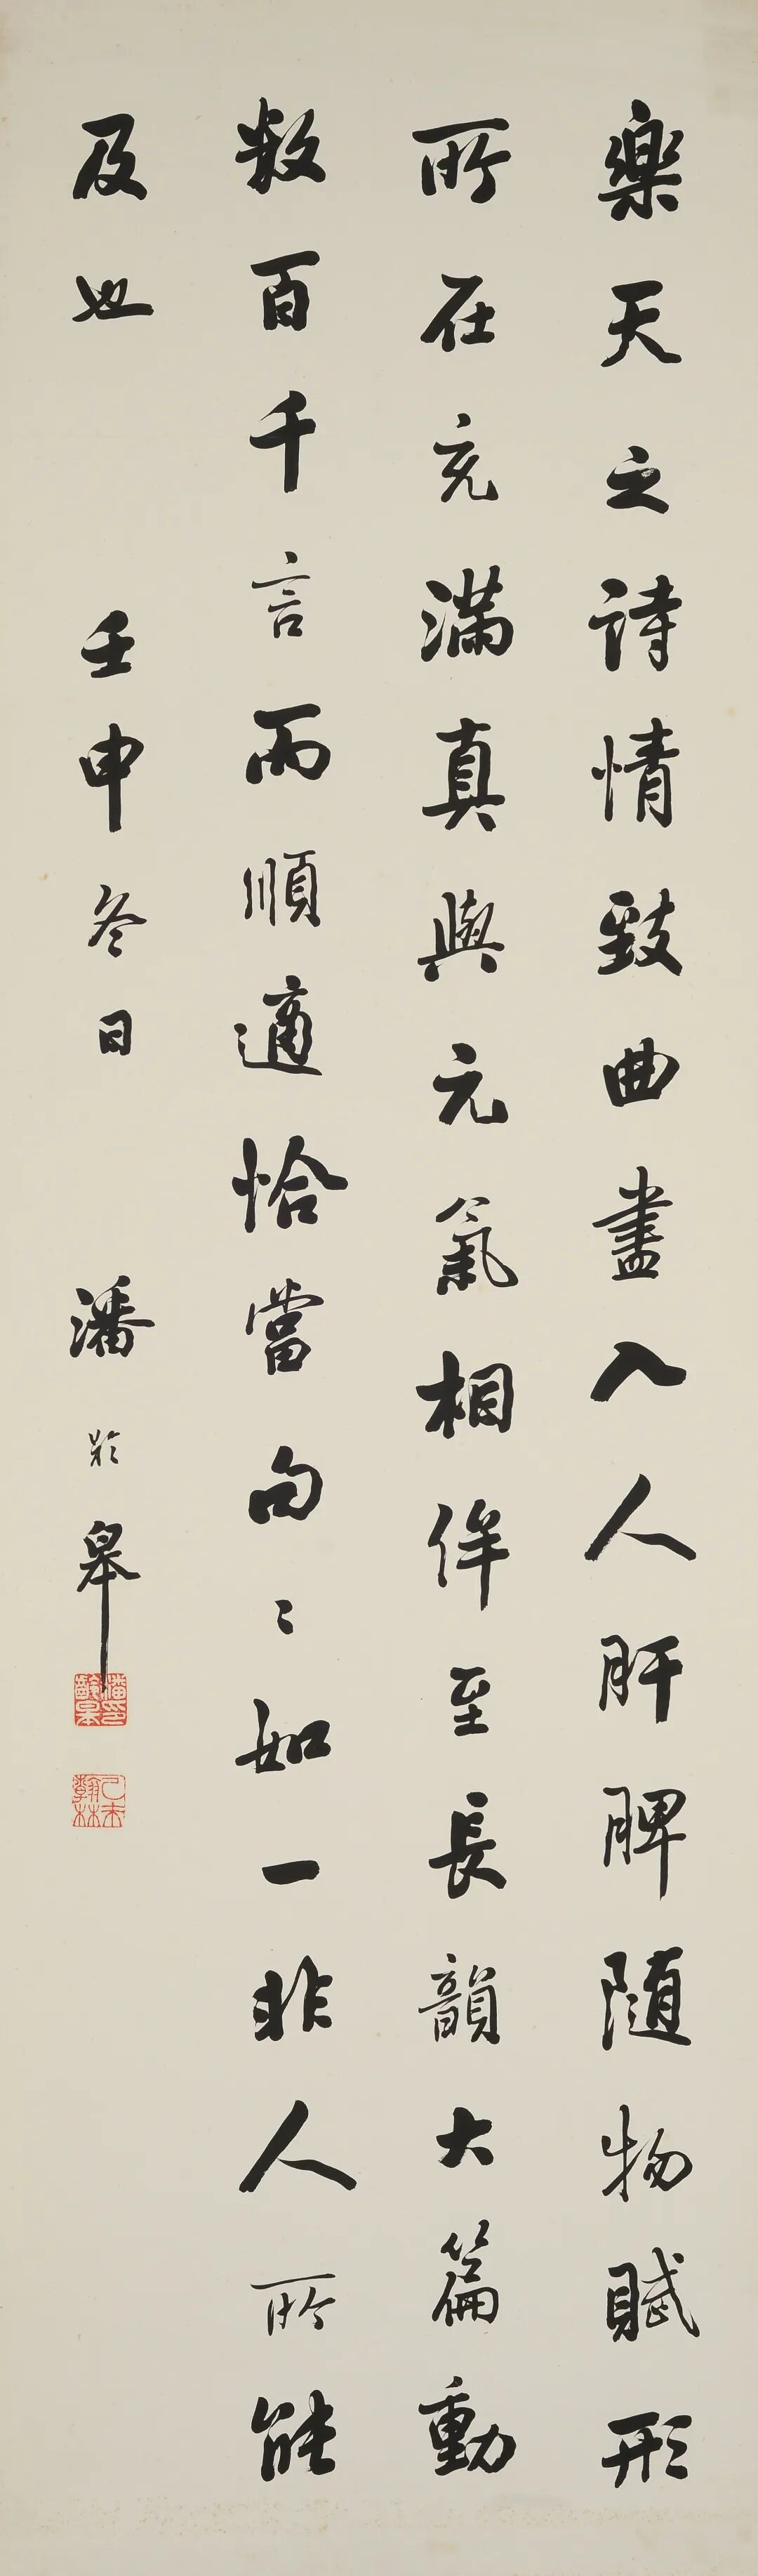 樂天之詩情致曲盡入人肝脾隨物賦形
所在充滿真與元氣相侔至長韻大篇動
數百千言而順適恰當句〻如一非人所能
及也 壬申冬日 潘齡皋
潘印齡皋
乙未翰林